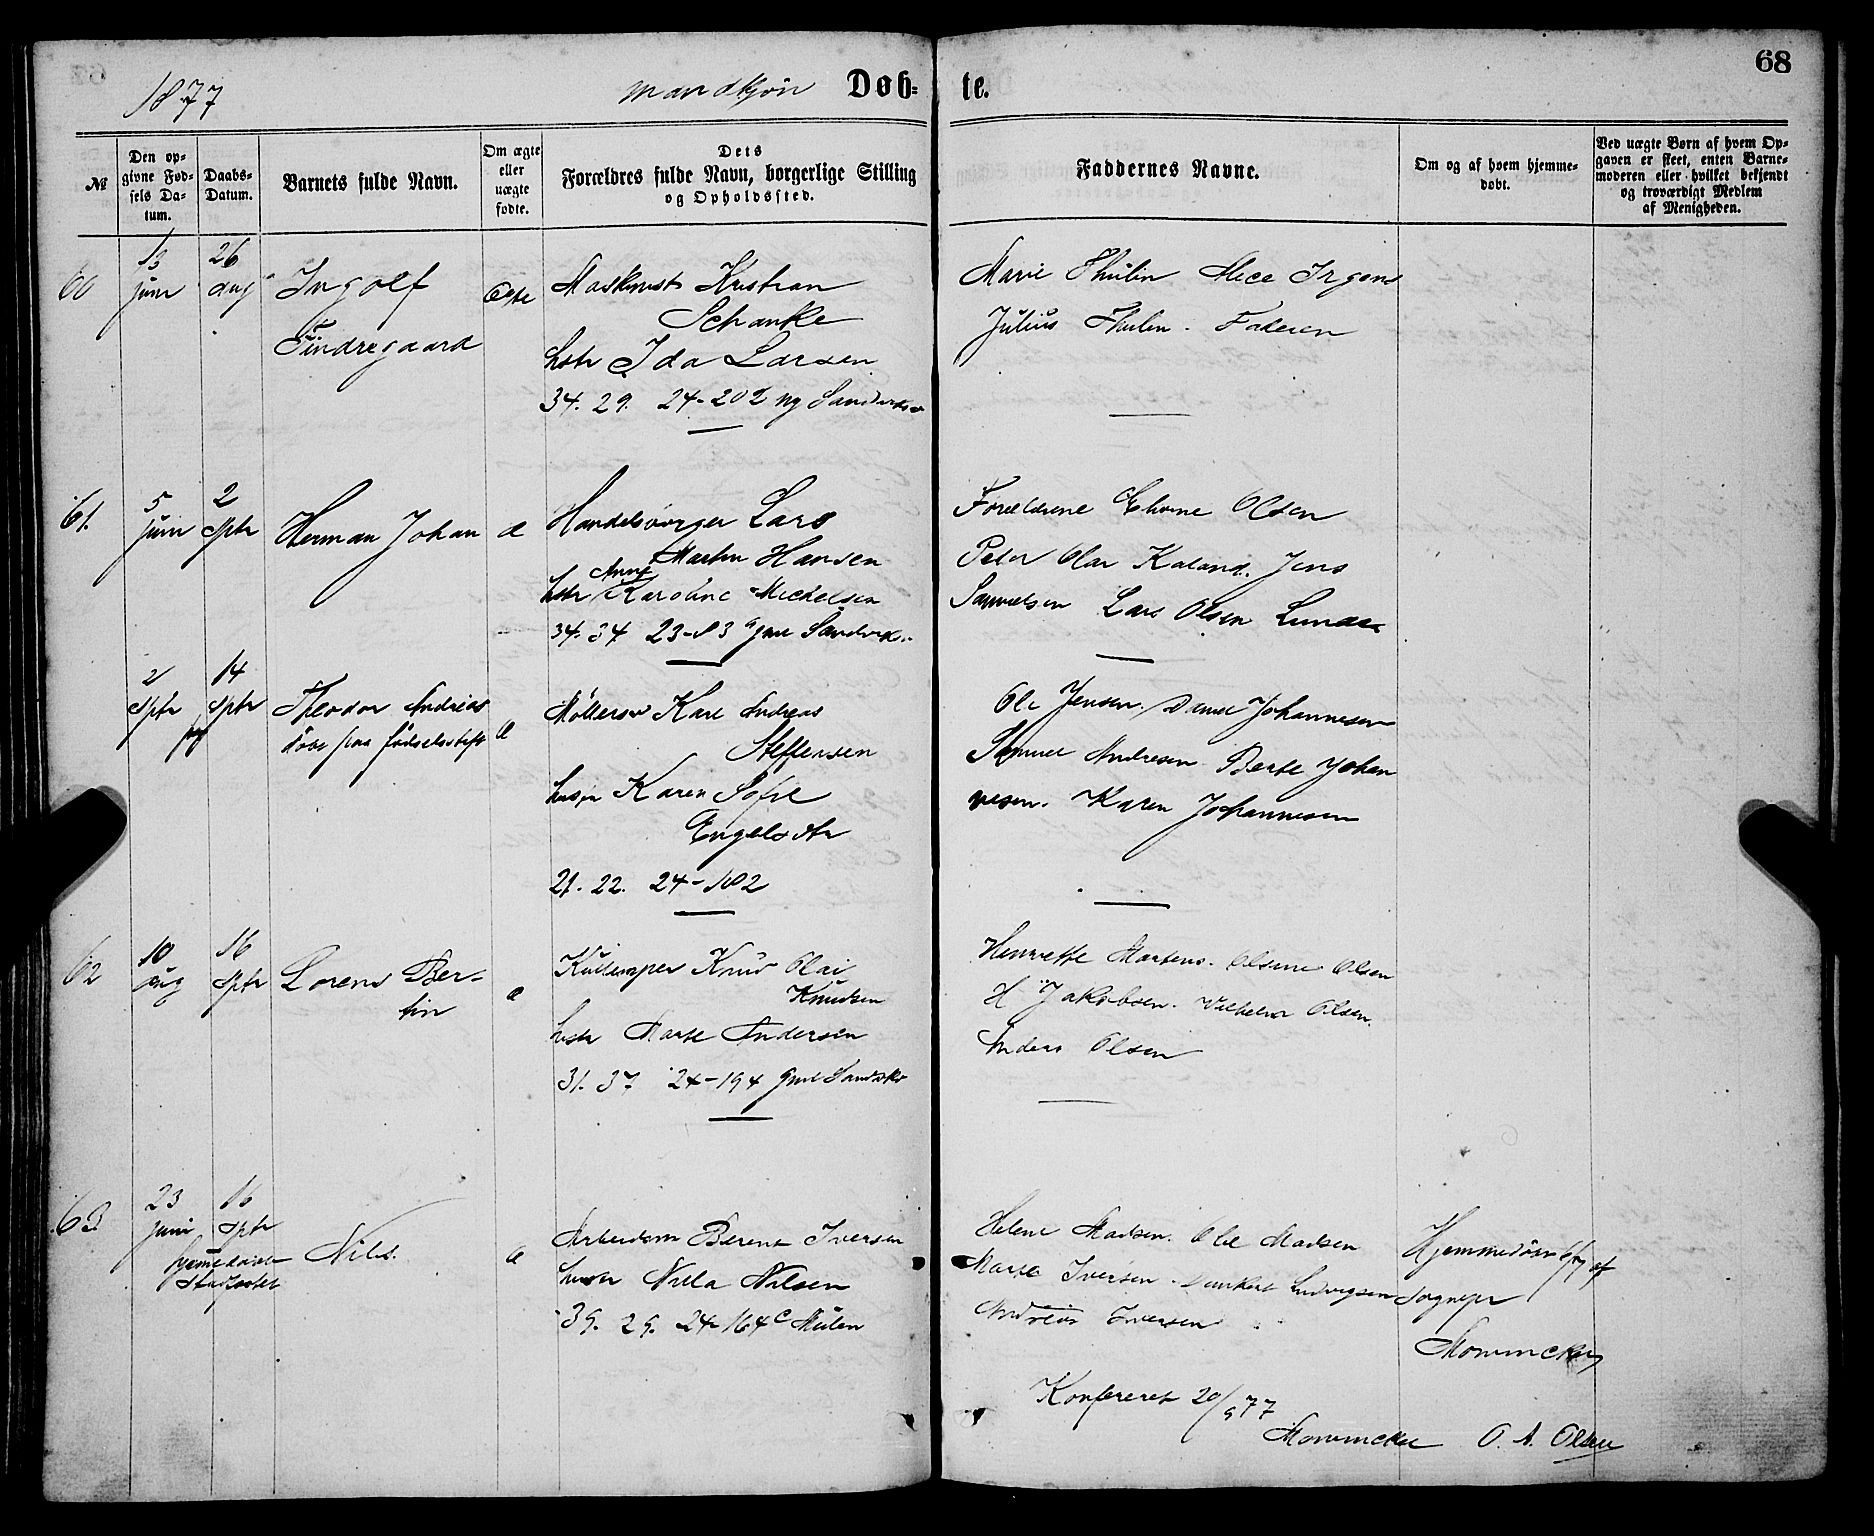 68
1877
mandkjön Døb- te.
№
Den op-
givne Fød-
sels Da-
tum.
Daabs-
Datum.
Barnets fulde Navn.
Om ægte
eller
uægte
fødte.
Dets
Forældres fulde Navn, borgerlige Stilling
og Opholdssted.
Faddernes Navne.
Om og af hvem hjemme-
døbt.
Ved uægte Børn af hvem Op-
gaven er skeet, enten Barne-
moderen eller hvilket bekjendt
og troværdigt Medlem
af Menigheden.
60
13
juni
26
aug
Ingolf
Tindregaard
Ægte
Maskinist Kristian
Schanke
hstr Ida Larsen
34. 29. 24-202
Marie Thulin Alice Irgens
Julius Thulin. Faderen
61.
5
juni
2
sptr
Herman Johan
æ
Handelsborger Lars
Martin Hansen
Anne
hstr Karoline Mickelsen
34. 34 23-83
Forældrene Olsen
Peter Olai Kaland. Jens
Samuelsen Lars Olsen Lunde
2
sptr
14
sptr
Theodor Andreas
døbt paa fødselsstift
æ
Karl Andreas
Steffensen
Karen Sofie
Engelsdtr
21. 22. 24-182
Ole Jensen. Daniel Johannesen
Samuel Andresen Berte Johan
nesen. Karen Johannesen
62
10
aug
16
sptr
Lorens Ber-
tin
æ
Knud Olai
Knudsen
hstr Marte Andersen
31. 37 24-194
Henriette Martens. Olsine Olsen
H Jakobsen. Vilhelm Olsen.
Anders Olsen
63
23
juni
16
sptr
hjemmedøbt
stadfæstet
Nils.
æ
Arbeidsm Berent Iversen
hustr Nilla Nilsen
39. 29. 24-164c Mulen
Helene Madsen. Ole Madsen
Marte Iversen. Dankert Ludvigsen
Andreas Iversen
Hjemmedøbt 6/7 af
Sognepr
Mowinckel
Konfereret 20/9 77
Mowinckel O. A. Olsen